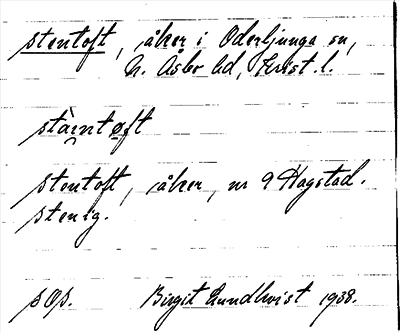 stentoft, åker i Oderljunga sn,
N. Åsbo hd, Krist. l.
stäntoft
stentoft, åker, nr 9 Hagstad.
stenig.
Birgit Lundkvist 1938.